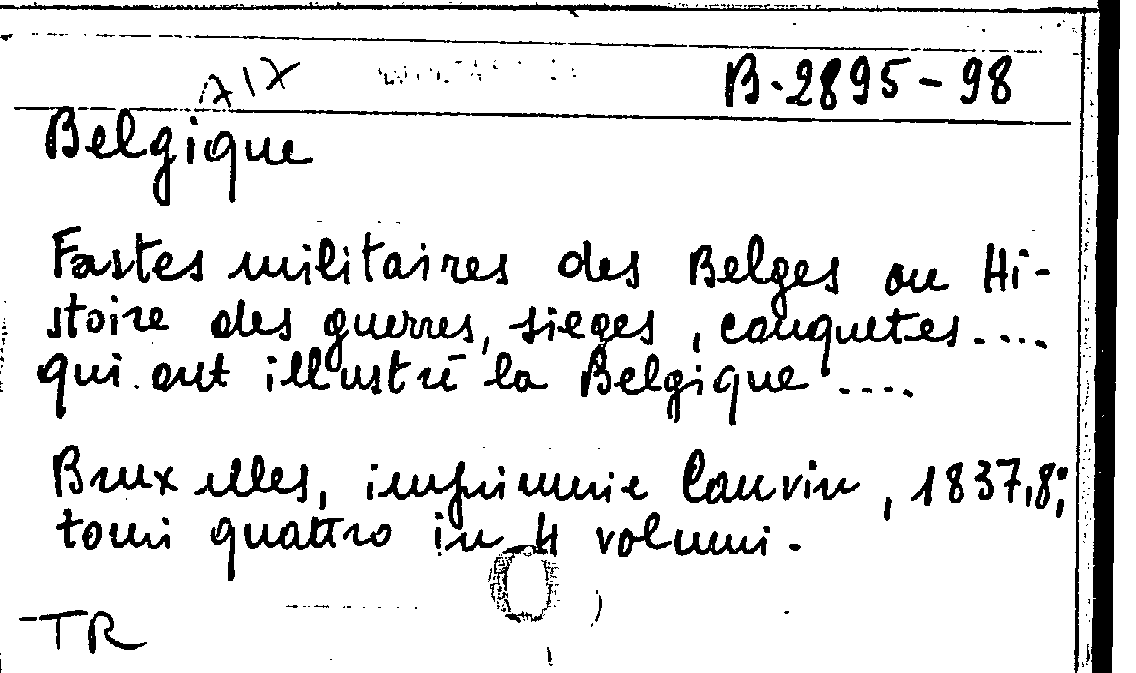 AIX B.2895-98
Belgique
Fastes militaires des Belges ou Hi-
stoire des guerres, sieges, conquetes....
qui ont illustré la Belgique....
Bruxelles, imprimerie Cauvin, 1837,8°;
tomi quattro in 4 volumi.
TR